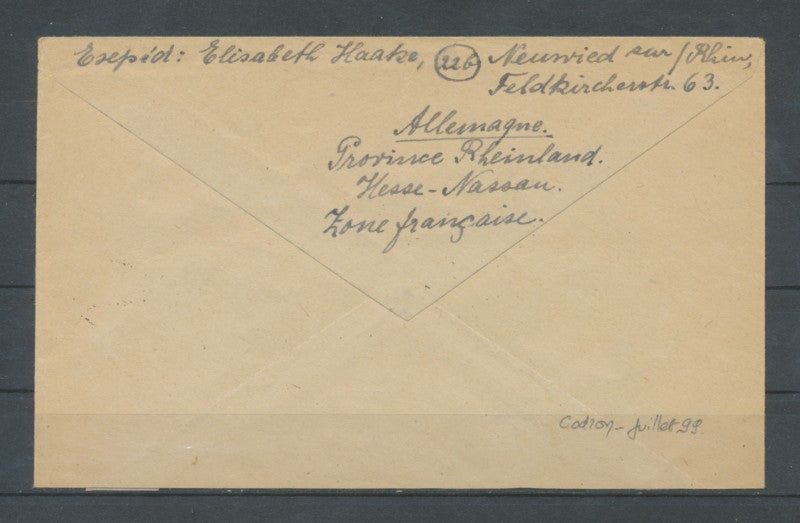 Esepéd: Elisabeth Haake, 22b Neuwied sur/Rhin,
Feldkircherstr. 63.
Allemagne.
Province Rheinland.
Hesse-Nassau.
Zone française.
Codron - Juillet 99.